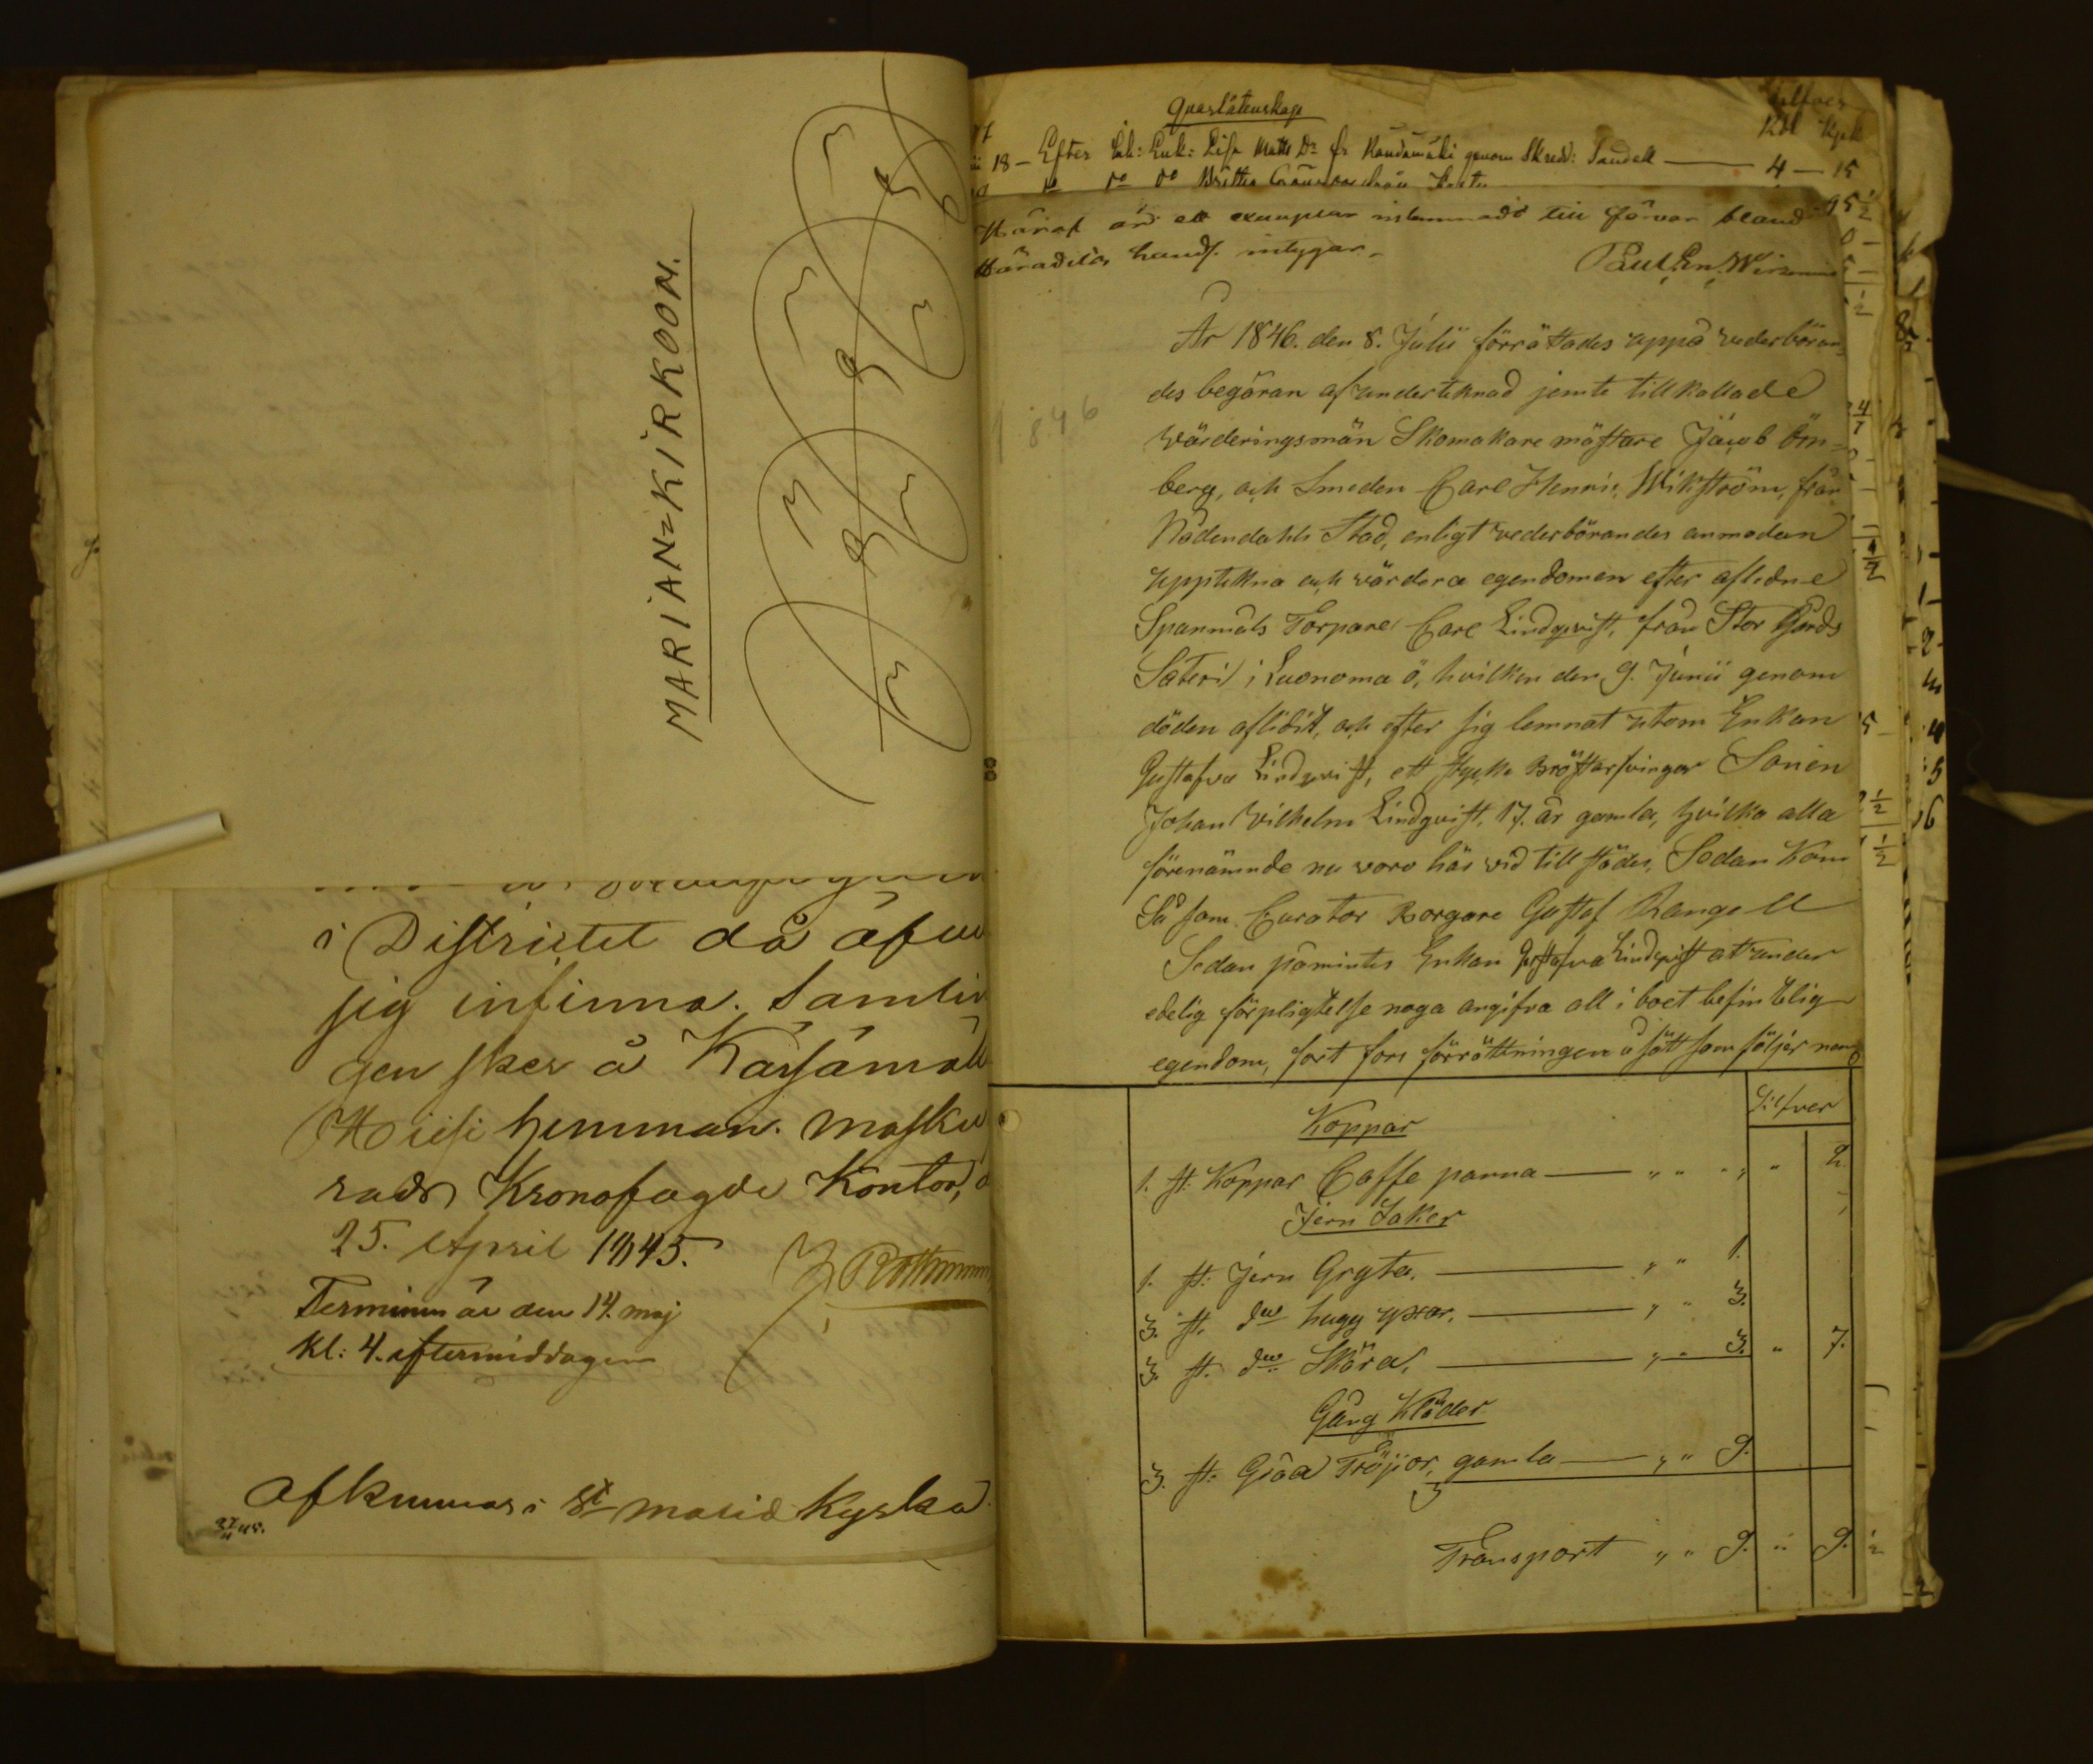 MARIAN=KIRKOON.
i Districtet då äfven
sig infinna. Samlin
gen sker å Karsämäk
Hiisi hemman. Masku
rads Kronofogde Kontor,
25. April 1845.
Terminen är den 14. maj
Kl: 4. eftermiddagen
afkunnas i St Marie Kyrka
Quarlåtenskap
Silfver
Rbl Kpk
18 - Efter Enk: Lisa Matts Dr fr genom Skredd: Sandell — 4 — 15
do do Britta
Häraf är ett exemplar inlemnadt till förvar bland
Häradets handl. intygar.
1846
År 1846. den 8. Julii förrättades uppå vederböran=
des begäran af underteknad jemte tillkallade
Värderingsmän Skomakare mästare Jacob Öm=
berg, och Smeden Carl Henric Wikström, från
Nådendahls Stad, enligt vederbörandes anmodan
uppttekna och värdera egendomen efter aflidne
Spanmåls Torpare Carl Lindqvist, från Stor Gårds
Säteri i Luonnoma ö, hvilken den 9. Junii genom
döden aflidit, och efter sig lemnat utom Enkan
Gustafva Lindqvist, ett stycke Bröstarfvingar Sonen
Johan Vilhelm Lindqvist, 17. år gamla, hvilka alla
förenämnde nu voro här vid till städes, Sedan Kom
Så som Curator Borgare Gustaf Rangell
Sedan påmintes Enkan Gustafva Lindqvist at under
edelig förpligtelse noga angifva all i boet befintelig
egendom, fort fors förrättningen å sätt som följer nemg
Silfver
Koppar
1. st: Koppar Caffe panna — „ „ „ „ 2
Jern Saker
1. st: Jern Gryta. — „ „ 1.
3. st. do hugg yxar. — „ „ 3.
3. st. do Skära. — „ „ 3. „ 7.
Gång Kläder
3. st: Gråa Tröjior, gamla — „ „ 9.
Transport „ „ 9. „ 9.